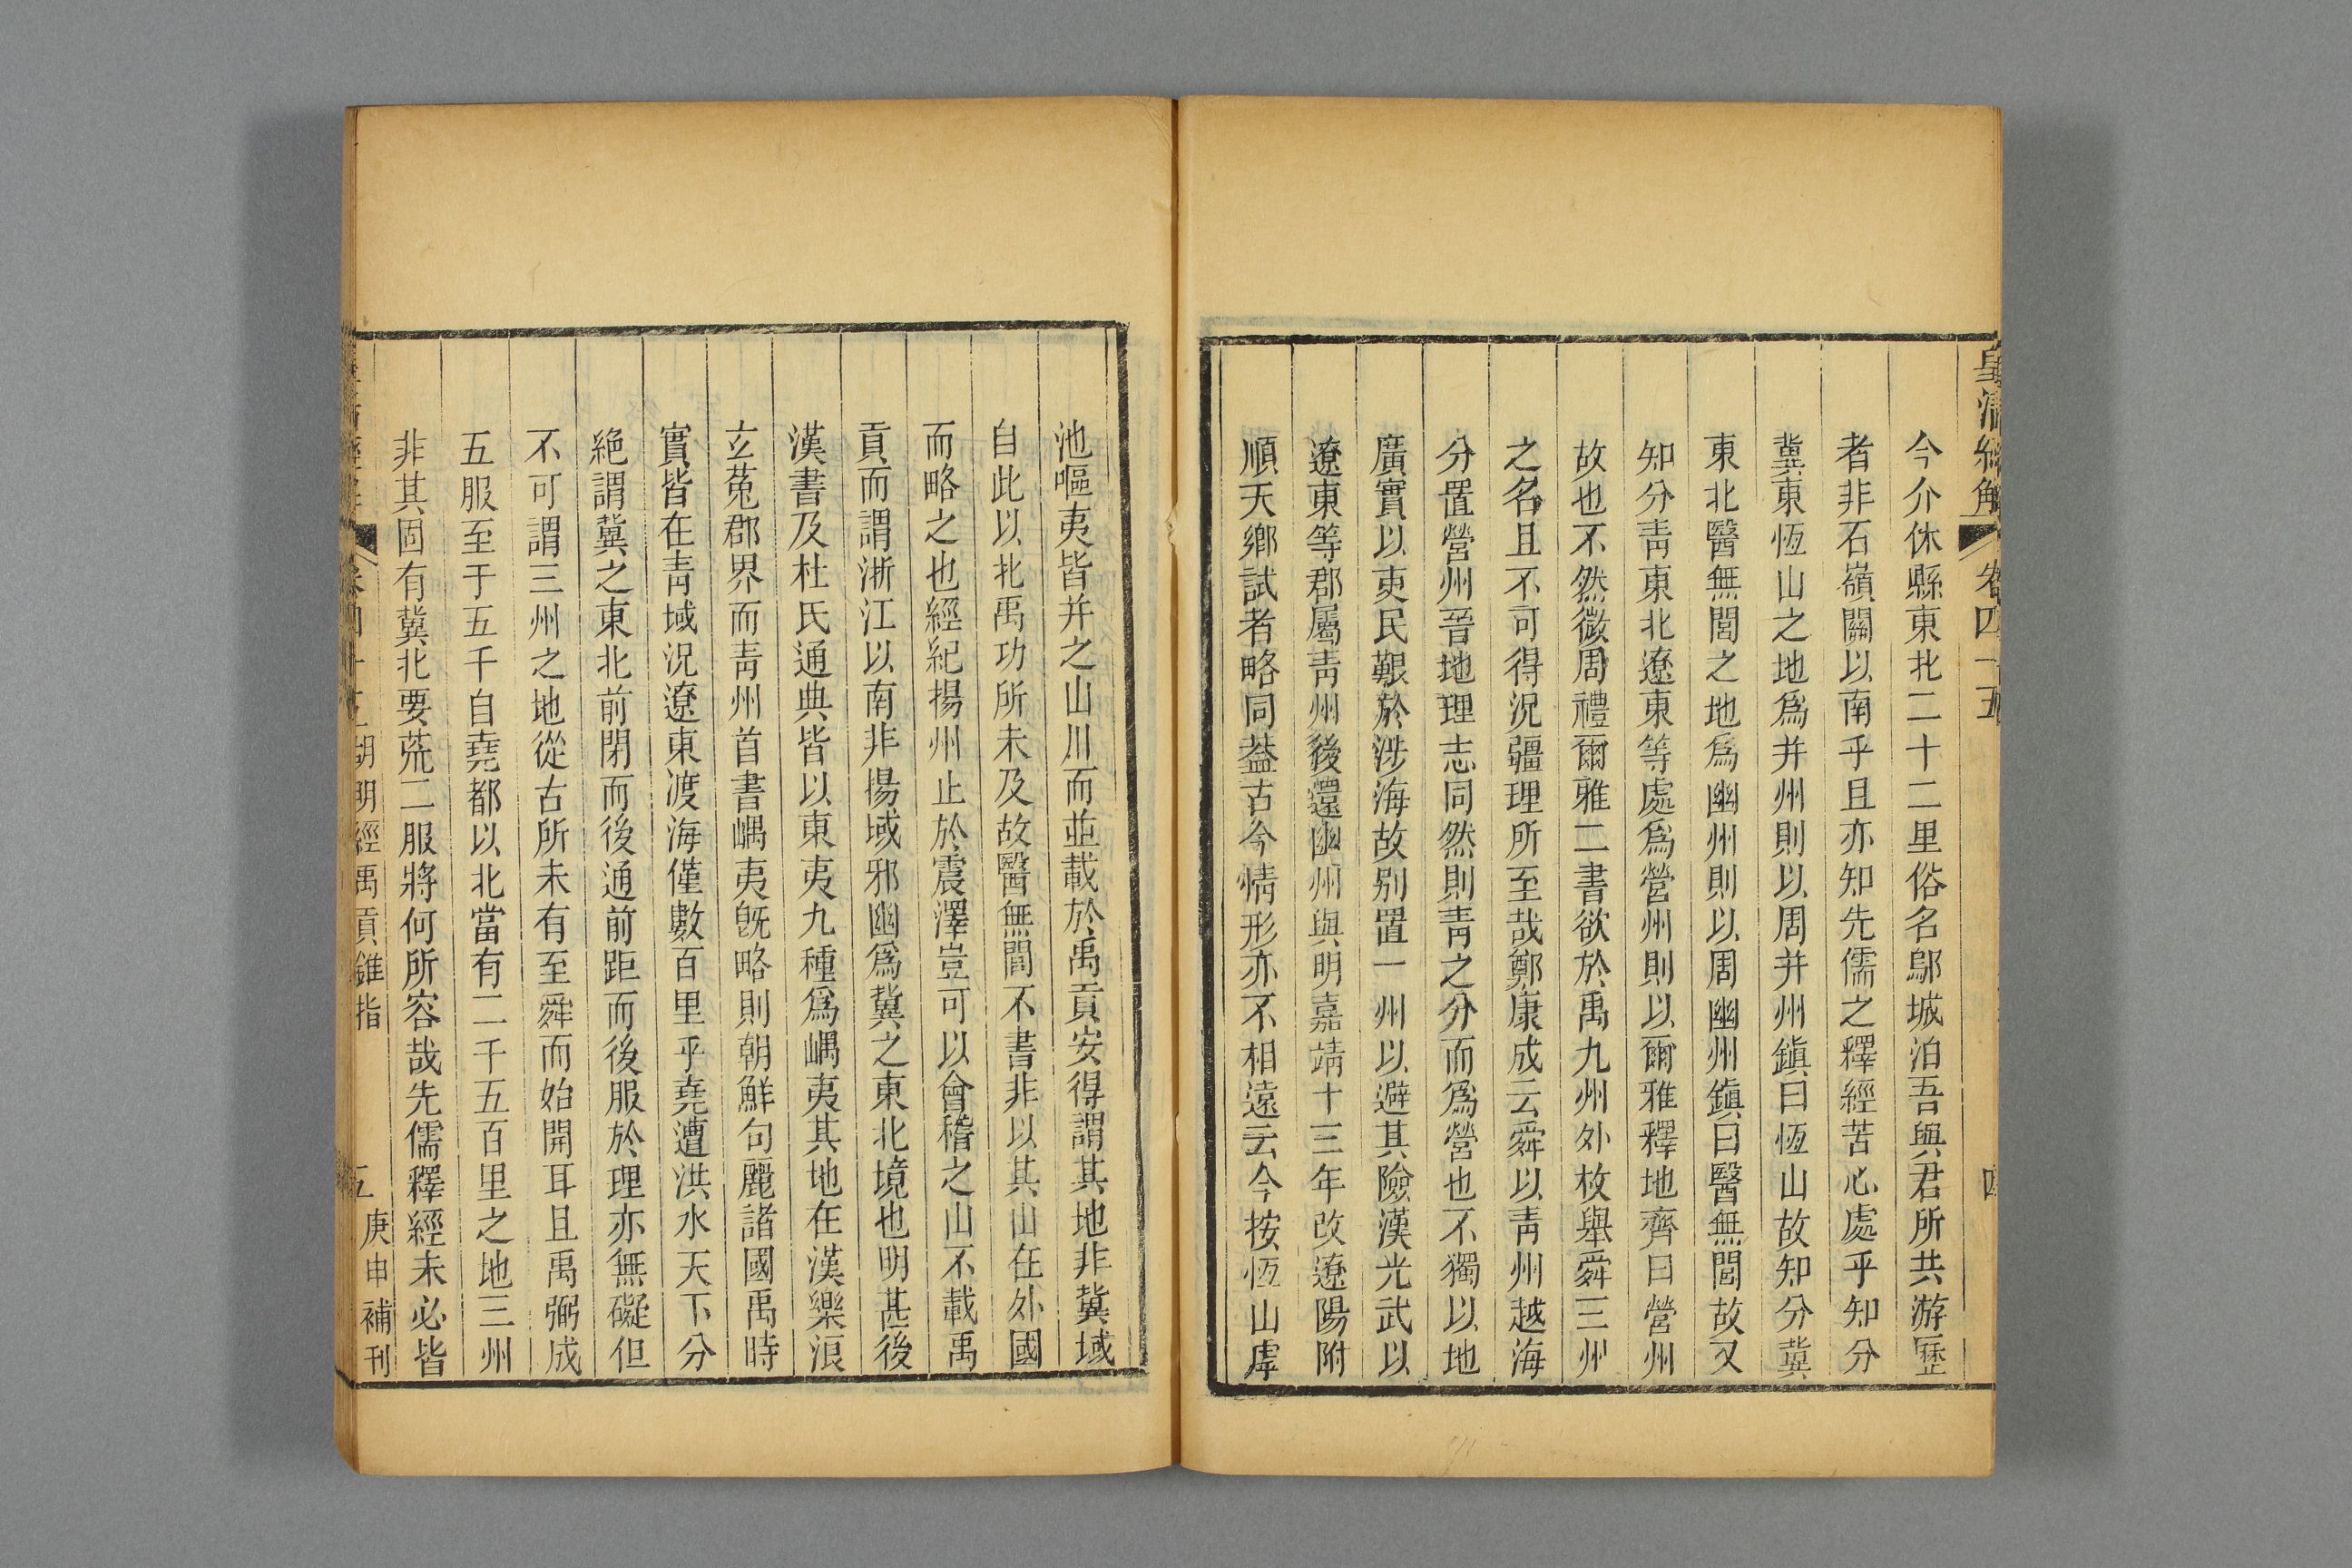 皇清經解
卷四十五
今介休縣東北二十二里俗名鄔城泊吾與君所共游歷
者非石嶺關以南乎且亦知先儒之釋經苦心處乎知分
冀東恆山之地爲并州則以周并州鎮曰恆山故知分冀
東北醫無閭之地爲幽州則以周幽州鎮曰醫無閭故又
知分靑東北遼東等處爲營州則以爾雅釋地齊曰營州
故也不然微周禮爾雅二書欲於禹九州外枚舉舜三州
之名且不可得況疆理所至哉鄭康成云舜以靑州越海
分置營州晉地理志同然則靑之分而爲營也不獨以地
廣實以吏民艱於涉海故別置一州以避其險漢光武以
遼東等郡屬靑州後還幽州與明嘉靖十三年改遼陽附
順天鄉試者略同葢古今情形亦不相遠云今按恆山虖
池嘔夷皆并之山川而並載於禹貢安得謂其地非冀域
自此以北禹功所未及故醫無閭不書非以其山在外國
而略之也經紀揚州止於震澤豈可以會稽之山不載禹
貢而謂浙江以南非揚域邪幽爲冀之東北境也明甚後
漢書及杜氏通典皆以東夷九種爲嵎夷其地在漢樂浪
玄菟郡界而靑州首書嵎夷旣略則朝鮮句麗諸國禹時
實皆在靑域況遼東渡海僅數百里乎堯遭洪水天下分
絶謂冀之東北前閉而後通前距而後服於理亦無礙但
不可謂三州之地從古所未有至舜而始開耳且禹弼成
五服至于五千自堯都以北當有二千五百里之地三州
非其固有冀北要荒二服將何所容哉先儒釋經未必皆
胡明經禹貢錐指
五
庚申補刊